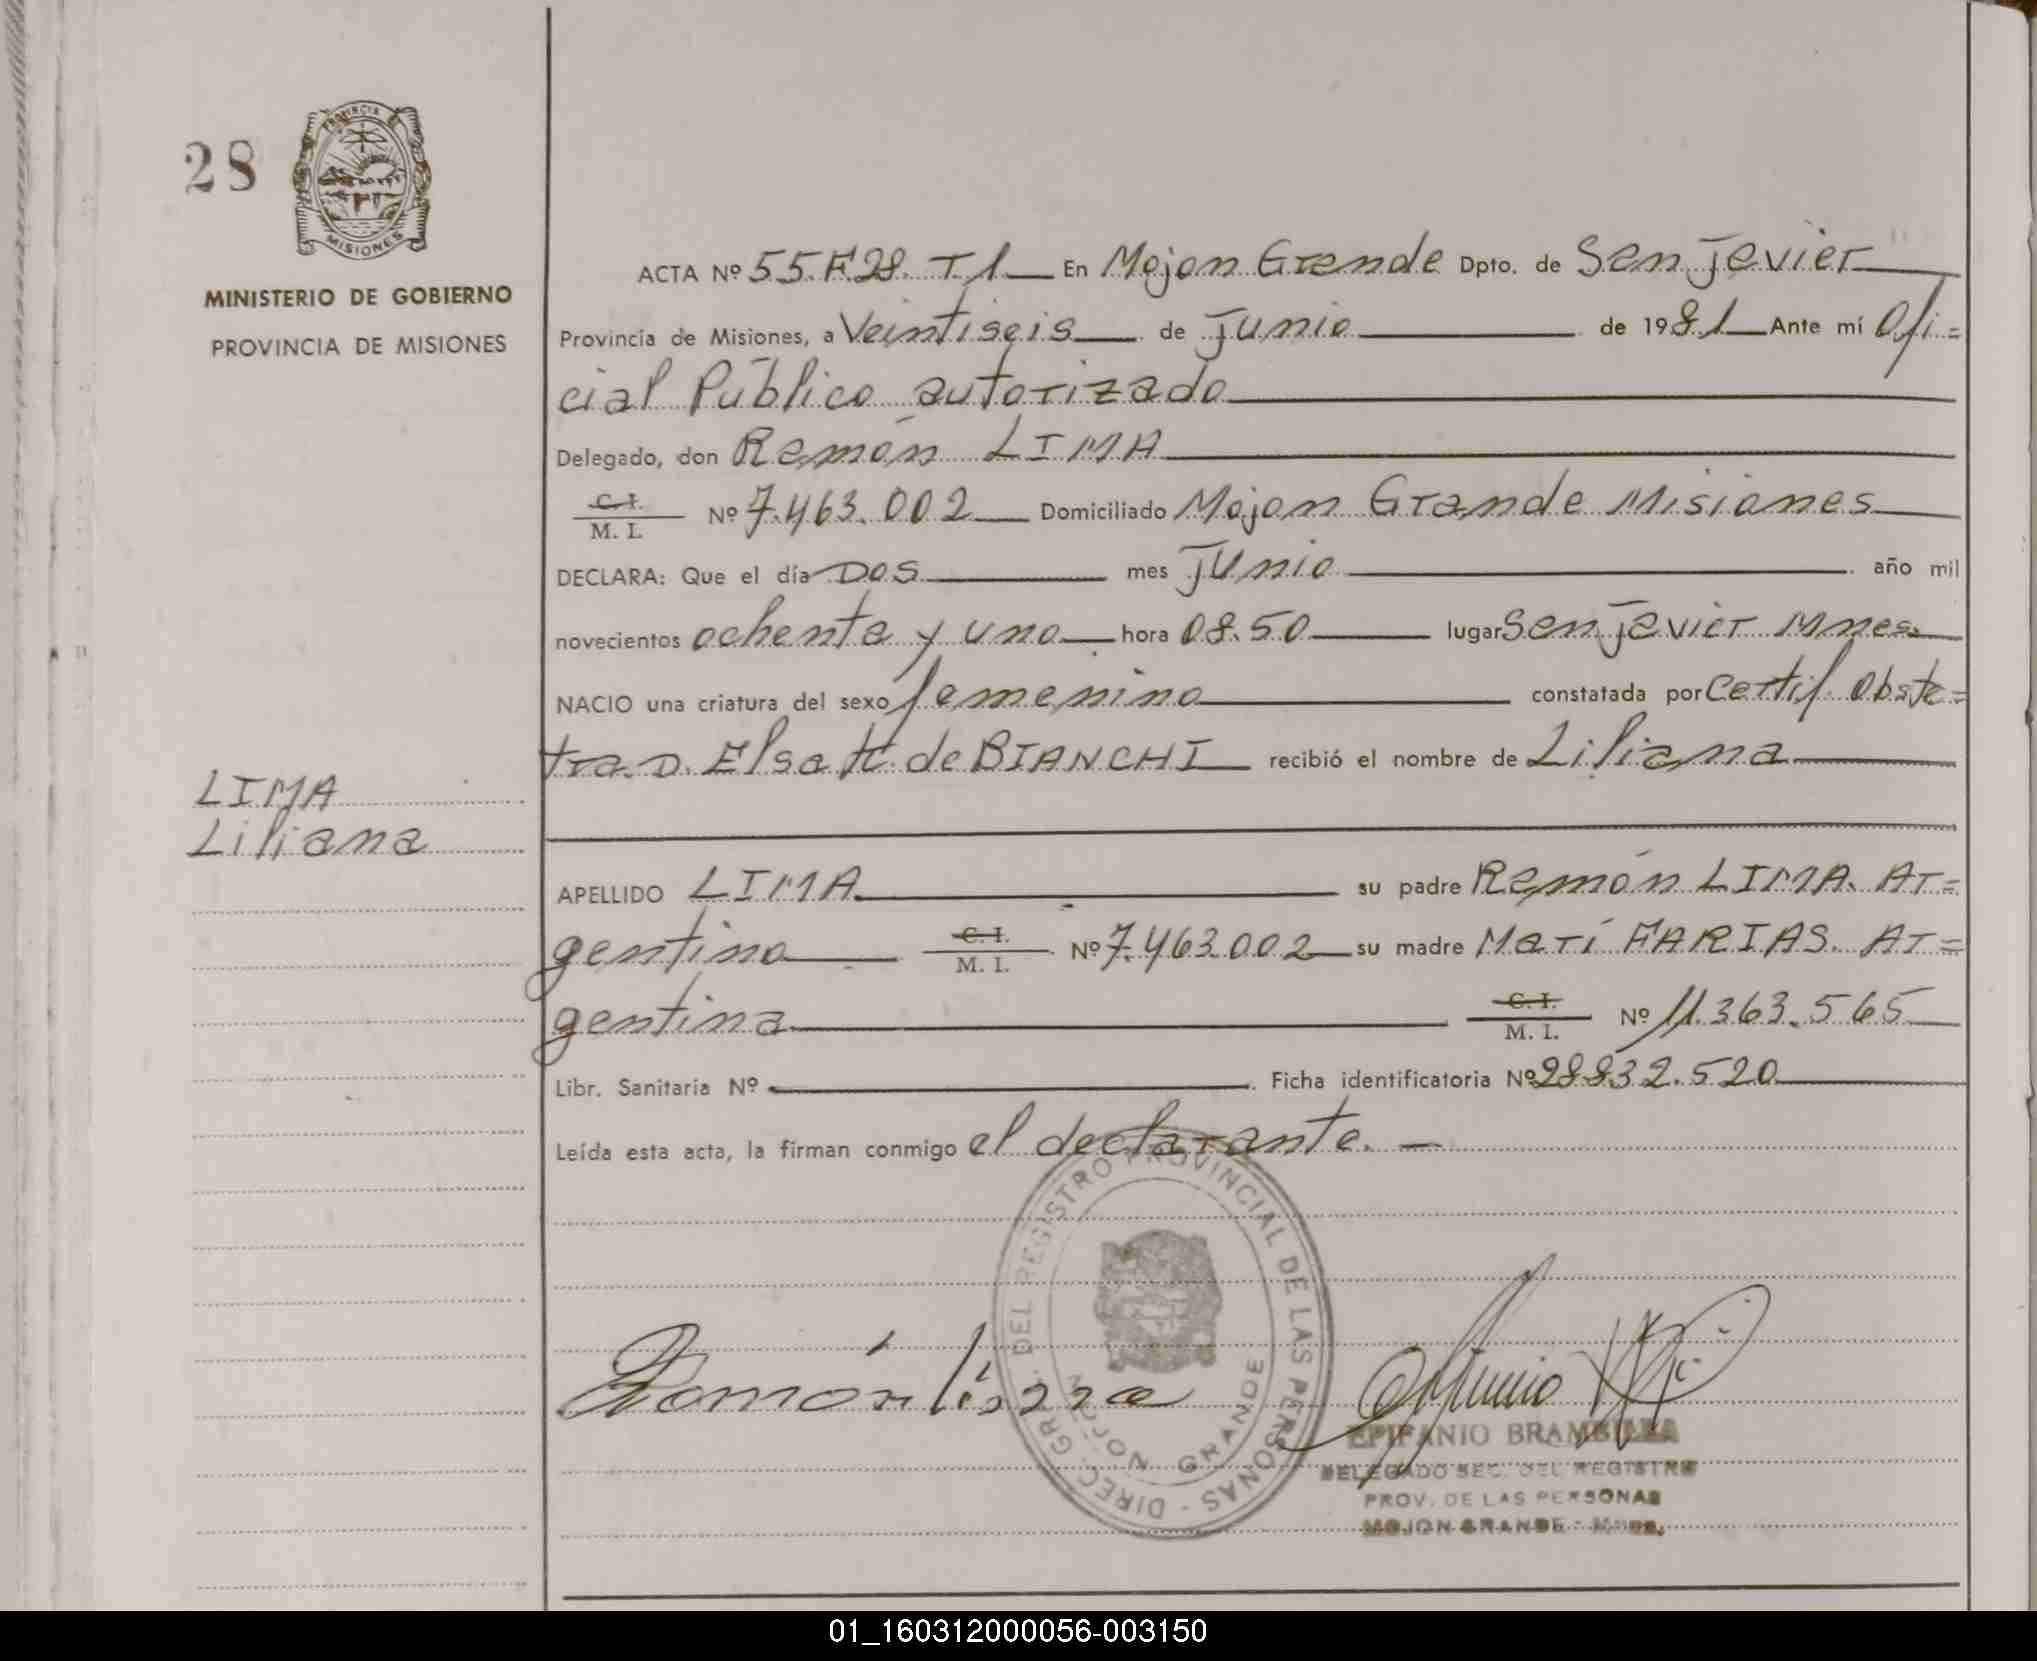 28
PROVINCIA
MISIONES
MINISTERIO DE GOBIERNO
PROVINCIA DE MISIONES
LIMA
Liliana
ACTA Nº 55.F28. T1 En Mojon Grande Dpto. de San Javier
Provincia de Misiones, a Veintiseis de junio de 1981 Ante mí Ofi=
cial Público autorizado
Delegado, don Ramón LIMA
C.I.
M. I. Nº 7.463.002 Domiciliado Mojon Grande Misiones
DECLARA: Que el día DOS mes junio año mil
novecientos ochenta y uno hora 08.50 lugar San Javier Mnes.
NACIO una criatura del sexo femenino constatada por Certif. Obste=
tra. D. Elsa H. de BIANCHI recibió el nombre de Liliana
APELLIDO LIMA su padre Ramón LIMA. Ar=
gentino C.I. M. I. Nº 7.463.002 su madre Marí FARIAS. Ar=
gentina C.I. M. I. Nº 11.363.565
Libr. Sanitaria Nº Ficha identificatoria Nº 28832.520
Leída esta acta, la firman conmigo el declarante. —
DIREC. GRAL. DEL REGISTRO PROVINCIAL DE LAS PERSONAS -
MOJON GRANDE
Ramón Lima
EPIFANIO BRAMBILLA
DELEGADO SEC. DEL REGISTRO
PROV. DE LAS PERSONAS
MOJON GRANDE - Mnes.
01_160312000056-003150